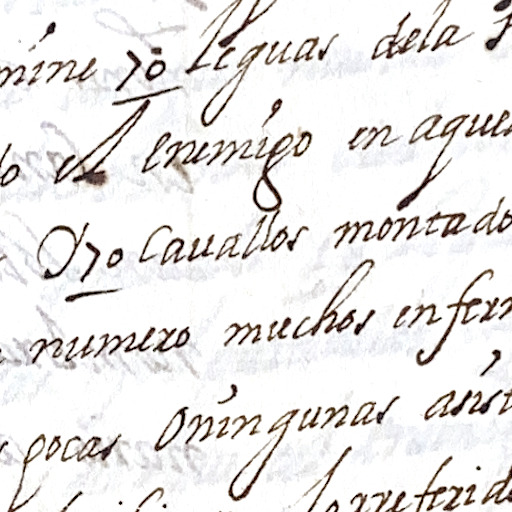 mine 70 leguas dela
do el enemigo en aque
970 Cauallos montado
numero muchos enfer
pocas O ningunas asis
lo rreferid